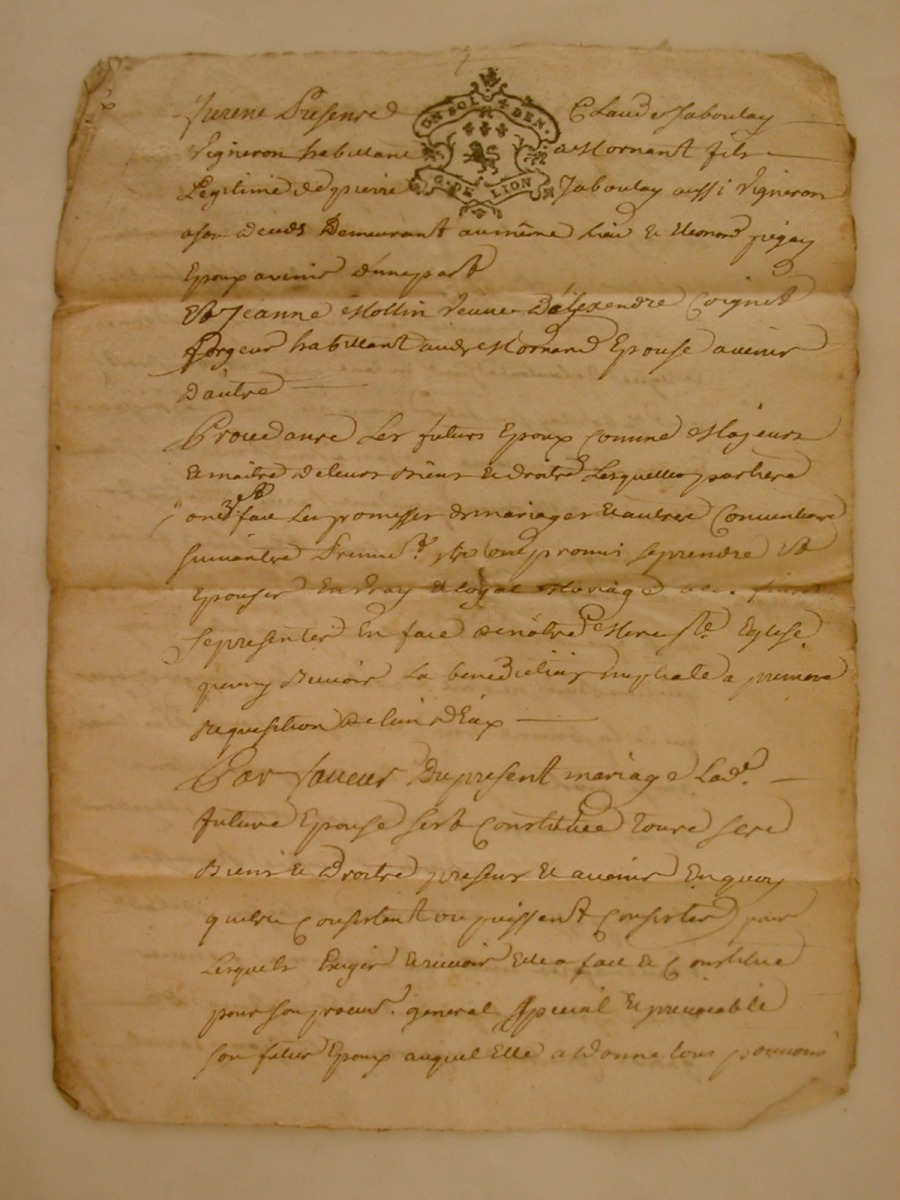 furent Presents Claude Jaboulay
UN SOL. & DEN.
G. DE LION
Vigneron habittant a Mornant fils
Legitime de pierre Jaboulay aussi Vigneron
Demeurant au même lieu & Eleonord pigay
Epoux avenir d'une part
Et Jeanne Mollin Veuve D'alexendre Coignet
forgeur habittant aud. Mornand Epouse avenir
D'autre
Procedants Les futurs Epoux Comme Majeurs
& maitre de leurs Biens & droits Lesquelles parties
ont fait Les promesses de mariages & autres Conventions
suivantes ont promis se prendre Et
Epouser En vray & loyal Mariage
se presenter En face de nôtre Mere Ste. Eglise
pour y Recevoir La benediction nuptiale a premiere
Requisition de l'un d'Eux
Par faveur Du present mariage Lade.
future Epouse sest Constituée Tous ses
Biens & Droits presens & avenir En quoy
quils Consistent ou puissent Consister pour
Lesquels Exiger & recevoir Elle a fait & Constitue
pour son procur. general Special & irrevocable
son futur Epoux auquel Elle a Donne tous pouvoirs